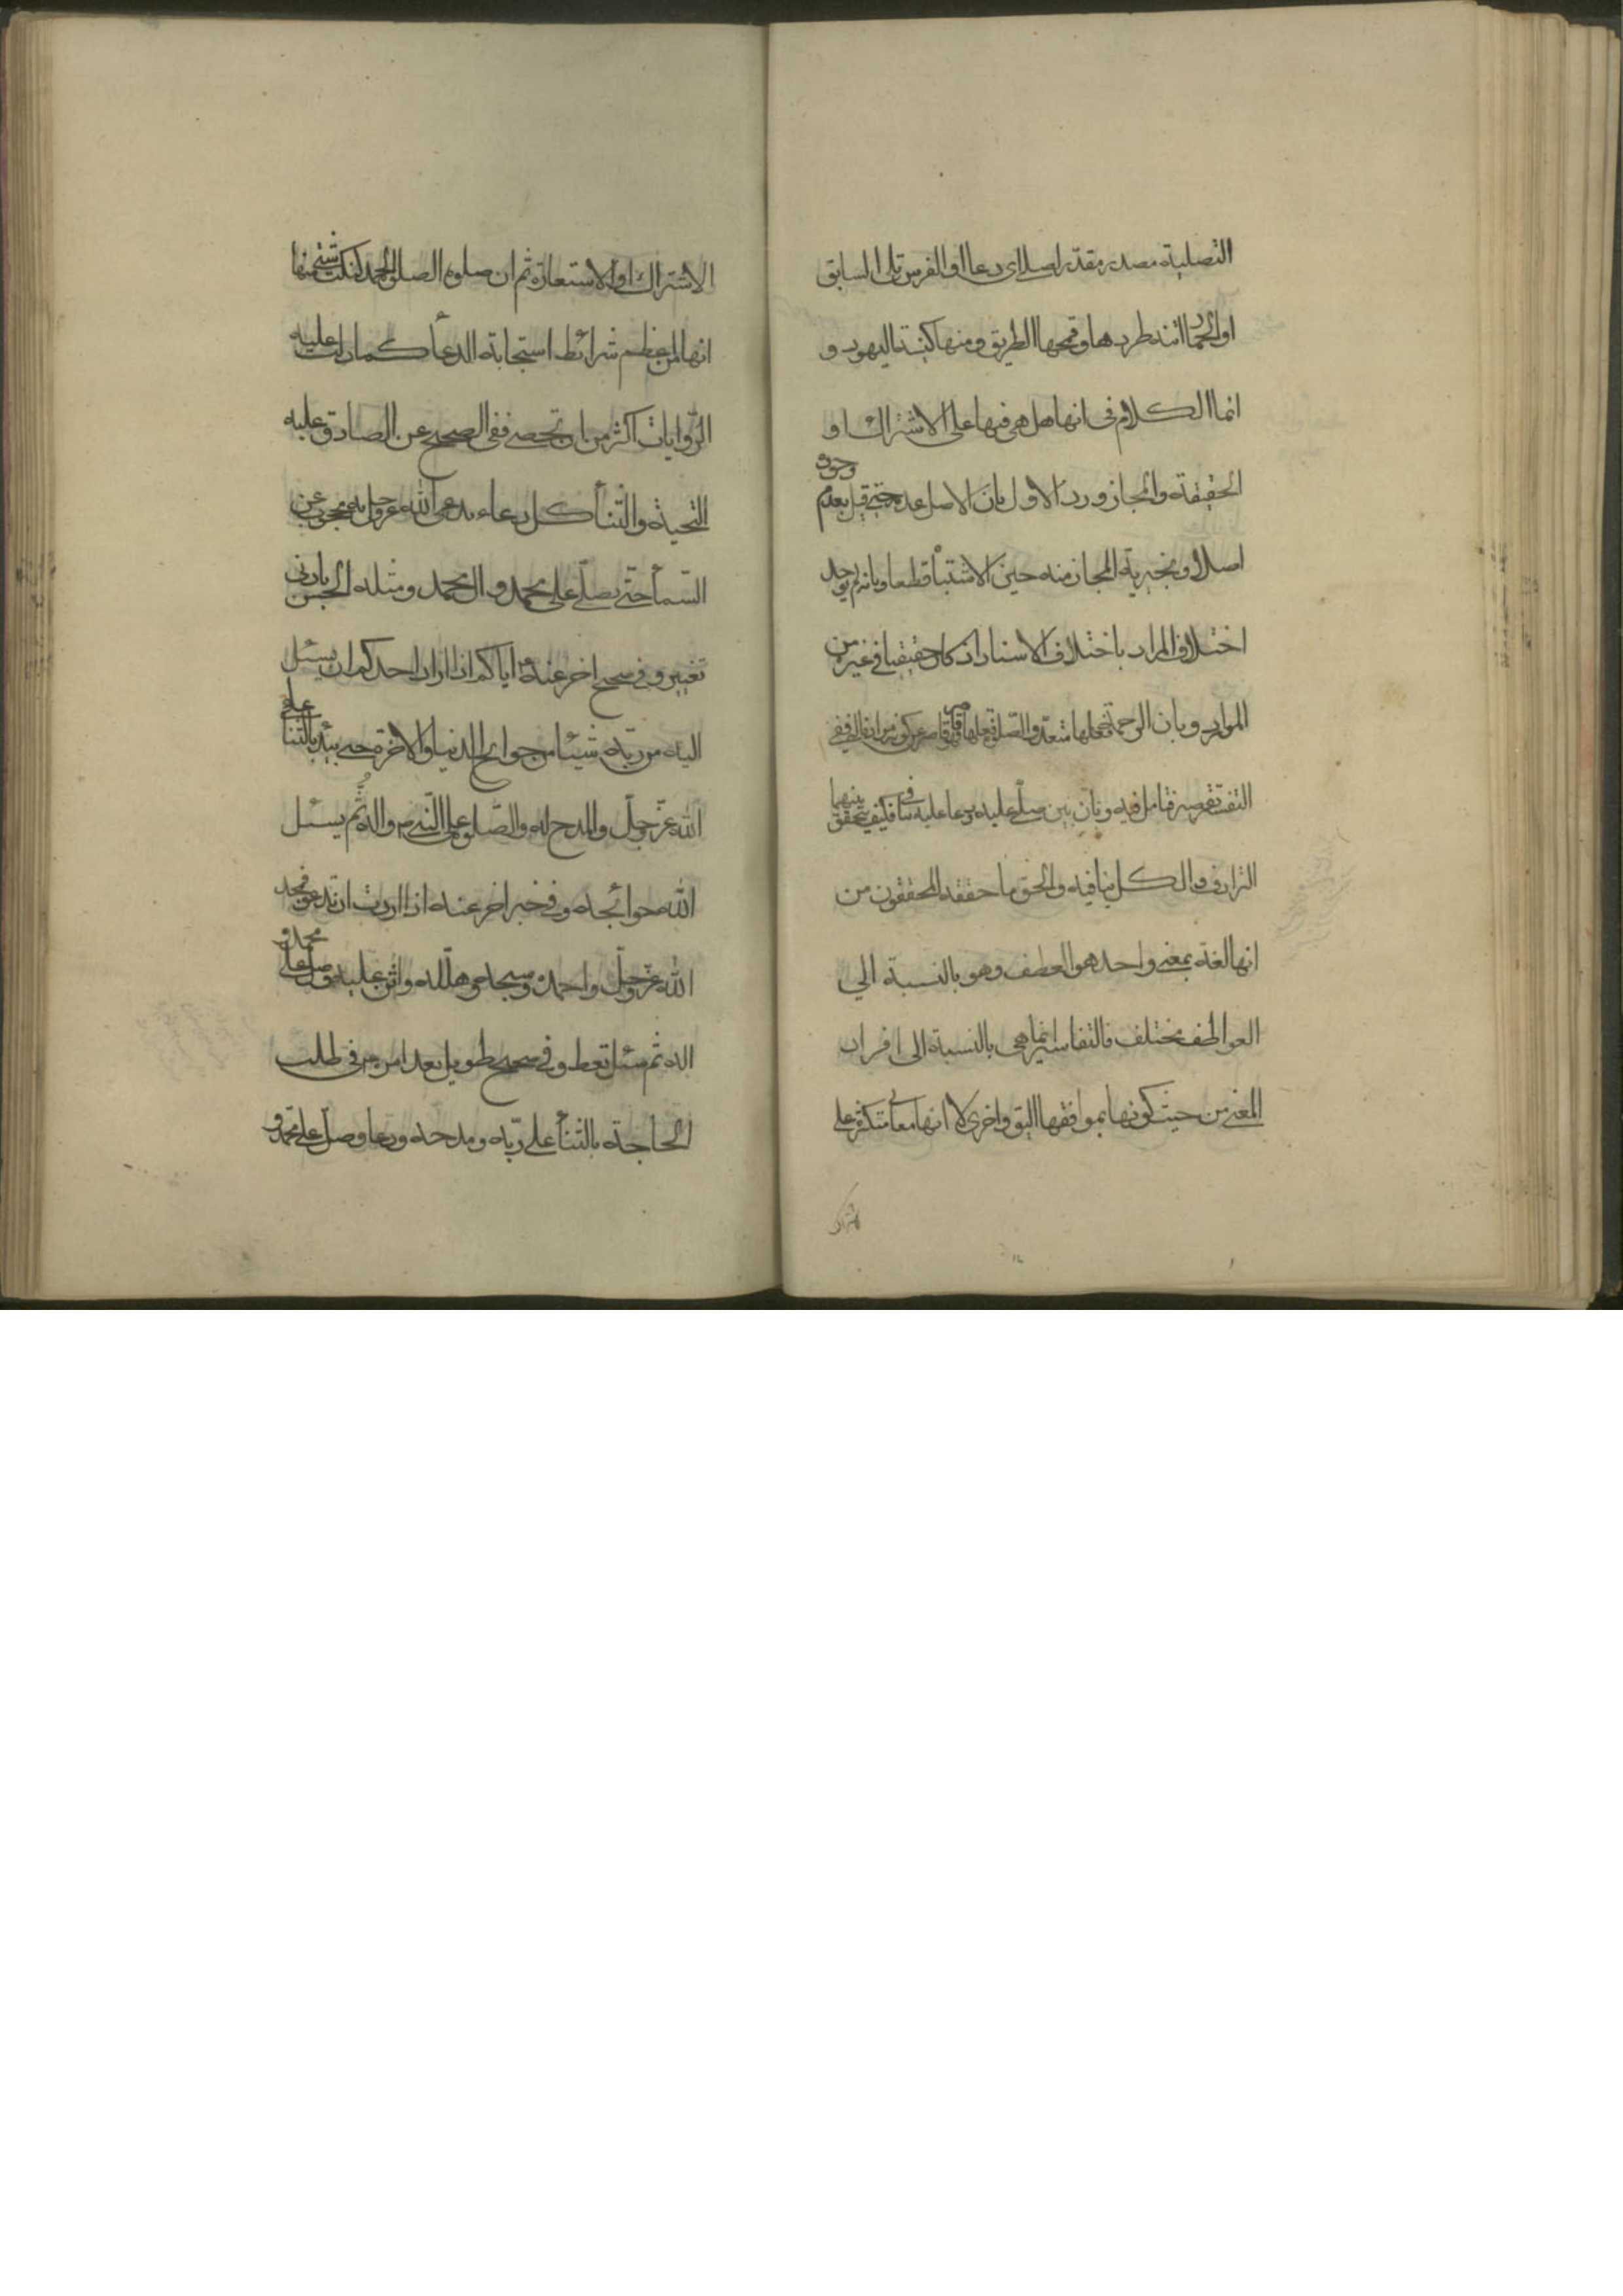 التصلية مصدر مقدر لصلا اى دعا او الفرس تلى السابق
او الحمار اتنه طردها وقحمها الطريق ومنها كنيسة اليهود و
انما الكلام فى انها هل هى فيها على الاشتراك او
الحقيقة والمجاز ورد الاول بان الاصل عدمه حتى قيل بعدم وجوده
اصلا و بخيرية المجاز منه حين الاشتباه قطعا وبانه لم يوجد
اختلاف المراد باختلاف الاسناد اذ كان حقيقيا فى غيره من
الموارد وبان الرحمة فعلها متعد والصلوة فعلها قاصر
فتامل فيه وبان بين صلى عليه ودعا عليه تنافى فكيف يتحقق بينهما
الترادف والكل ينافيه والحق ما حققه المحققون من
انها لغة بمعنى واحد هو العطف وهو بالنسبة الى
العواطف مختلف فالتفاسير انما هى بالنسبة الى افراد
المعنى من حيث كونها بموافقها اليق واخرى لا انها معانى متكثرة على
الاشتراك
الاشتراك او الاستعارة ثم ان صلوه الصلوة الحمد كنكت شتى منها
انها لمن اعظم شرائط استجابة الدعأ كما دلت عليه
الروايات اكثر من ان تحصى ففى الصحيح عن الصادق عليه
التحية والثنأ كل دعاء يدعى الله عز وجل به محجوب عن
السمأ حتى يصلى على محمد و ال محمد ومثله الحسن بادنى
تغيير وفى صحيح اخر عنه ع اياكم اذا اراد احدكم ان يسئل
اليه من ربه شيئا من حوائج الدنيا والاخرة حتى يبدء بالثنأ على
الله عز وجل والمدح له والصلوة على النبى ص واله ثم يسئل
الله حوائجه وفى خبر اخر عنه اذا اردت ان تدعو فمجد
الله عز وجل واحمده وسبحه وهلله واثن عليه وصل على محمد و
اله ثم سئل تعط وفى صحيح طويل بعد امر من فى طلب
الحاجة بالثنأ على ربه ومدحه ودعا وصل على محمد و